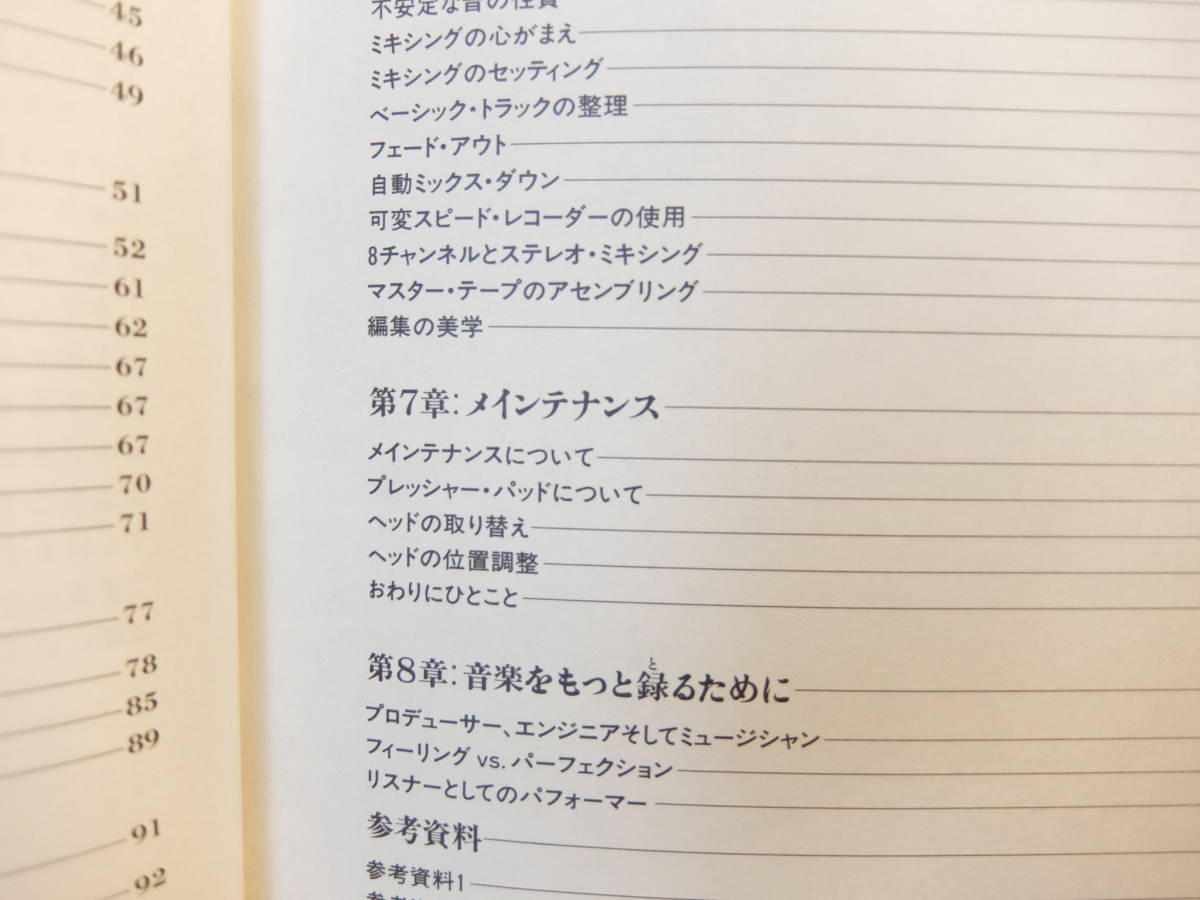 45
46
49
51
52
61
62
67
67
67
70
71
77
78
85
89
91
92
不安定な音の性質
ミキシングの心がまえ
ミキシングのセッティング
ベーシック・トラックの整理
フェード・アウト
自動ミックス・ダウン
可変スピード・レコーダーの使用
8チャンネルとステレオ・ミキシング
マスター・テープのアセンブリング
編集の美学
第7章:メインテナンス
メインテナンスについて
プレッシャー・パッドについて
ヘッドの取り替え
ヘッドの位置調整
おわりにひとこと
と
第8章:音楽をもっと録るために
プロデューサー、エンジニアそしてミュージシャン
フィーリング vs. パーフェクション
リスナーとしてのパフォーマー
参考資料
参考資料1